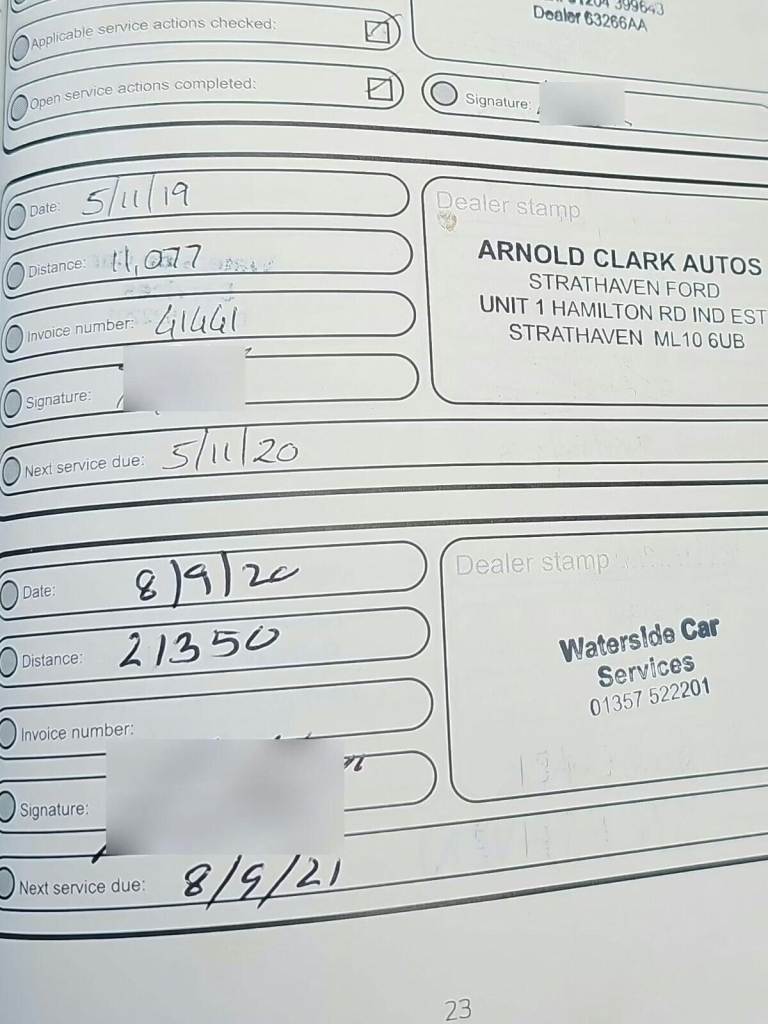 399643
Dealer 63266AA
Applicable service actions checked:
Open service actions completed:
Signature:
Date: 5/11/19
Dealer stamp
Distance: 11,077
ARNOLD CLARK AUTOS
STRATHAVEN FORD
UNIT 1 HAMILTON RD IND EST
STRATHAVEN ML10 6UB
Invoice number: 41441
Signature:
Next service due: 5/11/20
Date: 8/9/20
Dealer stamp
Distance: 21350
Waterside Car
Services
01357 522201
Invoice number:
Signature:
Next service due: 8/9/21
23